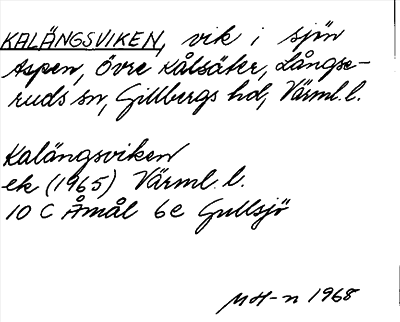 KALÄNGSVIKEN, vik i sjön
Aspen, Övre Kålsäter, Långse-
ruds sn, Gillbergs hd, Värml. l.
Kalängsviken
ek (1965) Värml. l.
10 C Åmål 6e Gullsjö
MH-n 1968